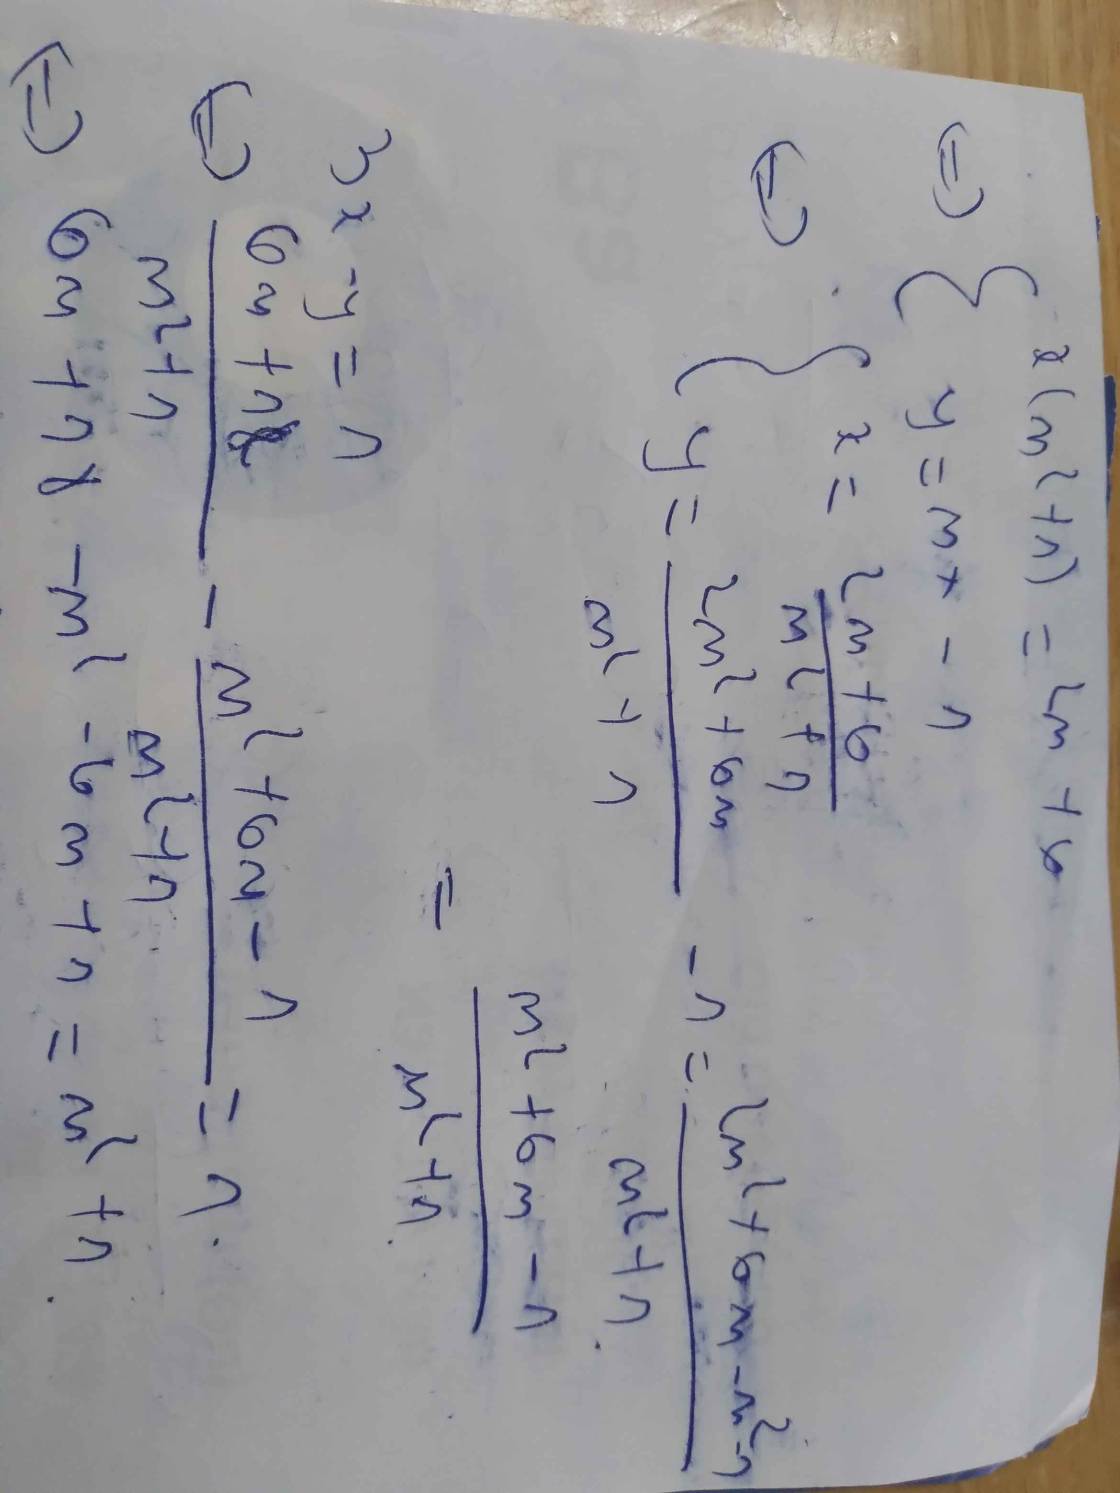 ⇔ { x(m²+1) = 2m+6
y = mx - 1
⇔ { x = \frac{2m+6}{m²+1}
y = \frac{2m²+6m}{m²+1} - 1 = \frac{2m²+6m-m²-1}{m²+1}
= \frac{m²+6m-1}{m²+1}
3x - y = 1
⇔ \frac{6m+18}{m²+1} - \frac{m²+6m-1}{m²+1} = 1.
⇔ 6m+18 - m² - 6m + 1 = m² + 1.